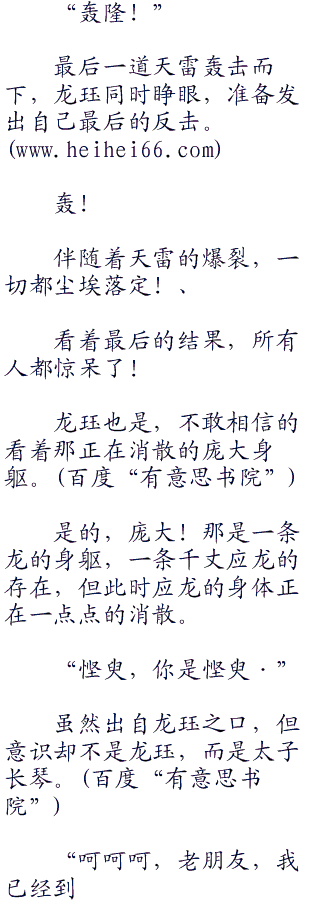 “轰隆！”
最后一道天雷轰击而
下，龙珏同时睁眼，准备发
出自己最后的反击。
(www.heihei66.com)
轰！
伴随着天雷的爆裂，一
切都尘埃落定！、
看着最后的结果，所有
人都惊呆了！
龙珏也是，不敢相信的
看着那正在消散的庞大身
躯。(百度“有意思书院”)
是的，庞大！那是一条
龙的身躯，一条千丈应龙的
存在，但此时应龙的身体正
在一点点的消散。
“悭臾，你是悭臾·”
虽然出自龙珏之口，但
意识却不是龙珏，而是太子
长琴。(百度“有意思书
院”)
“呵呵呵，老朋友，我
已经到